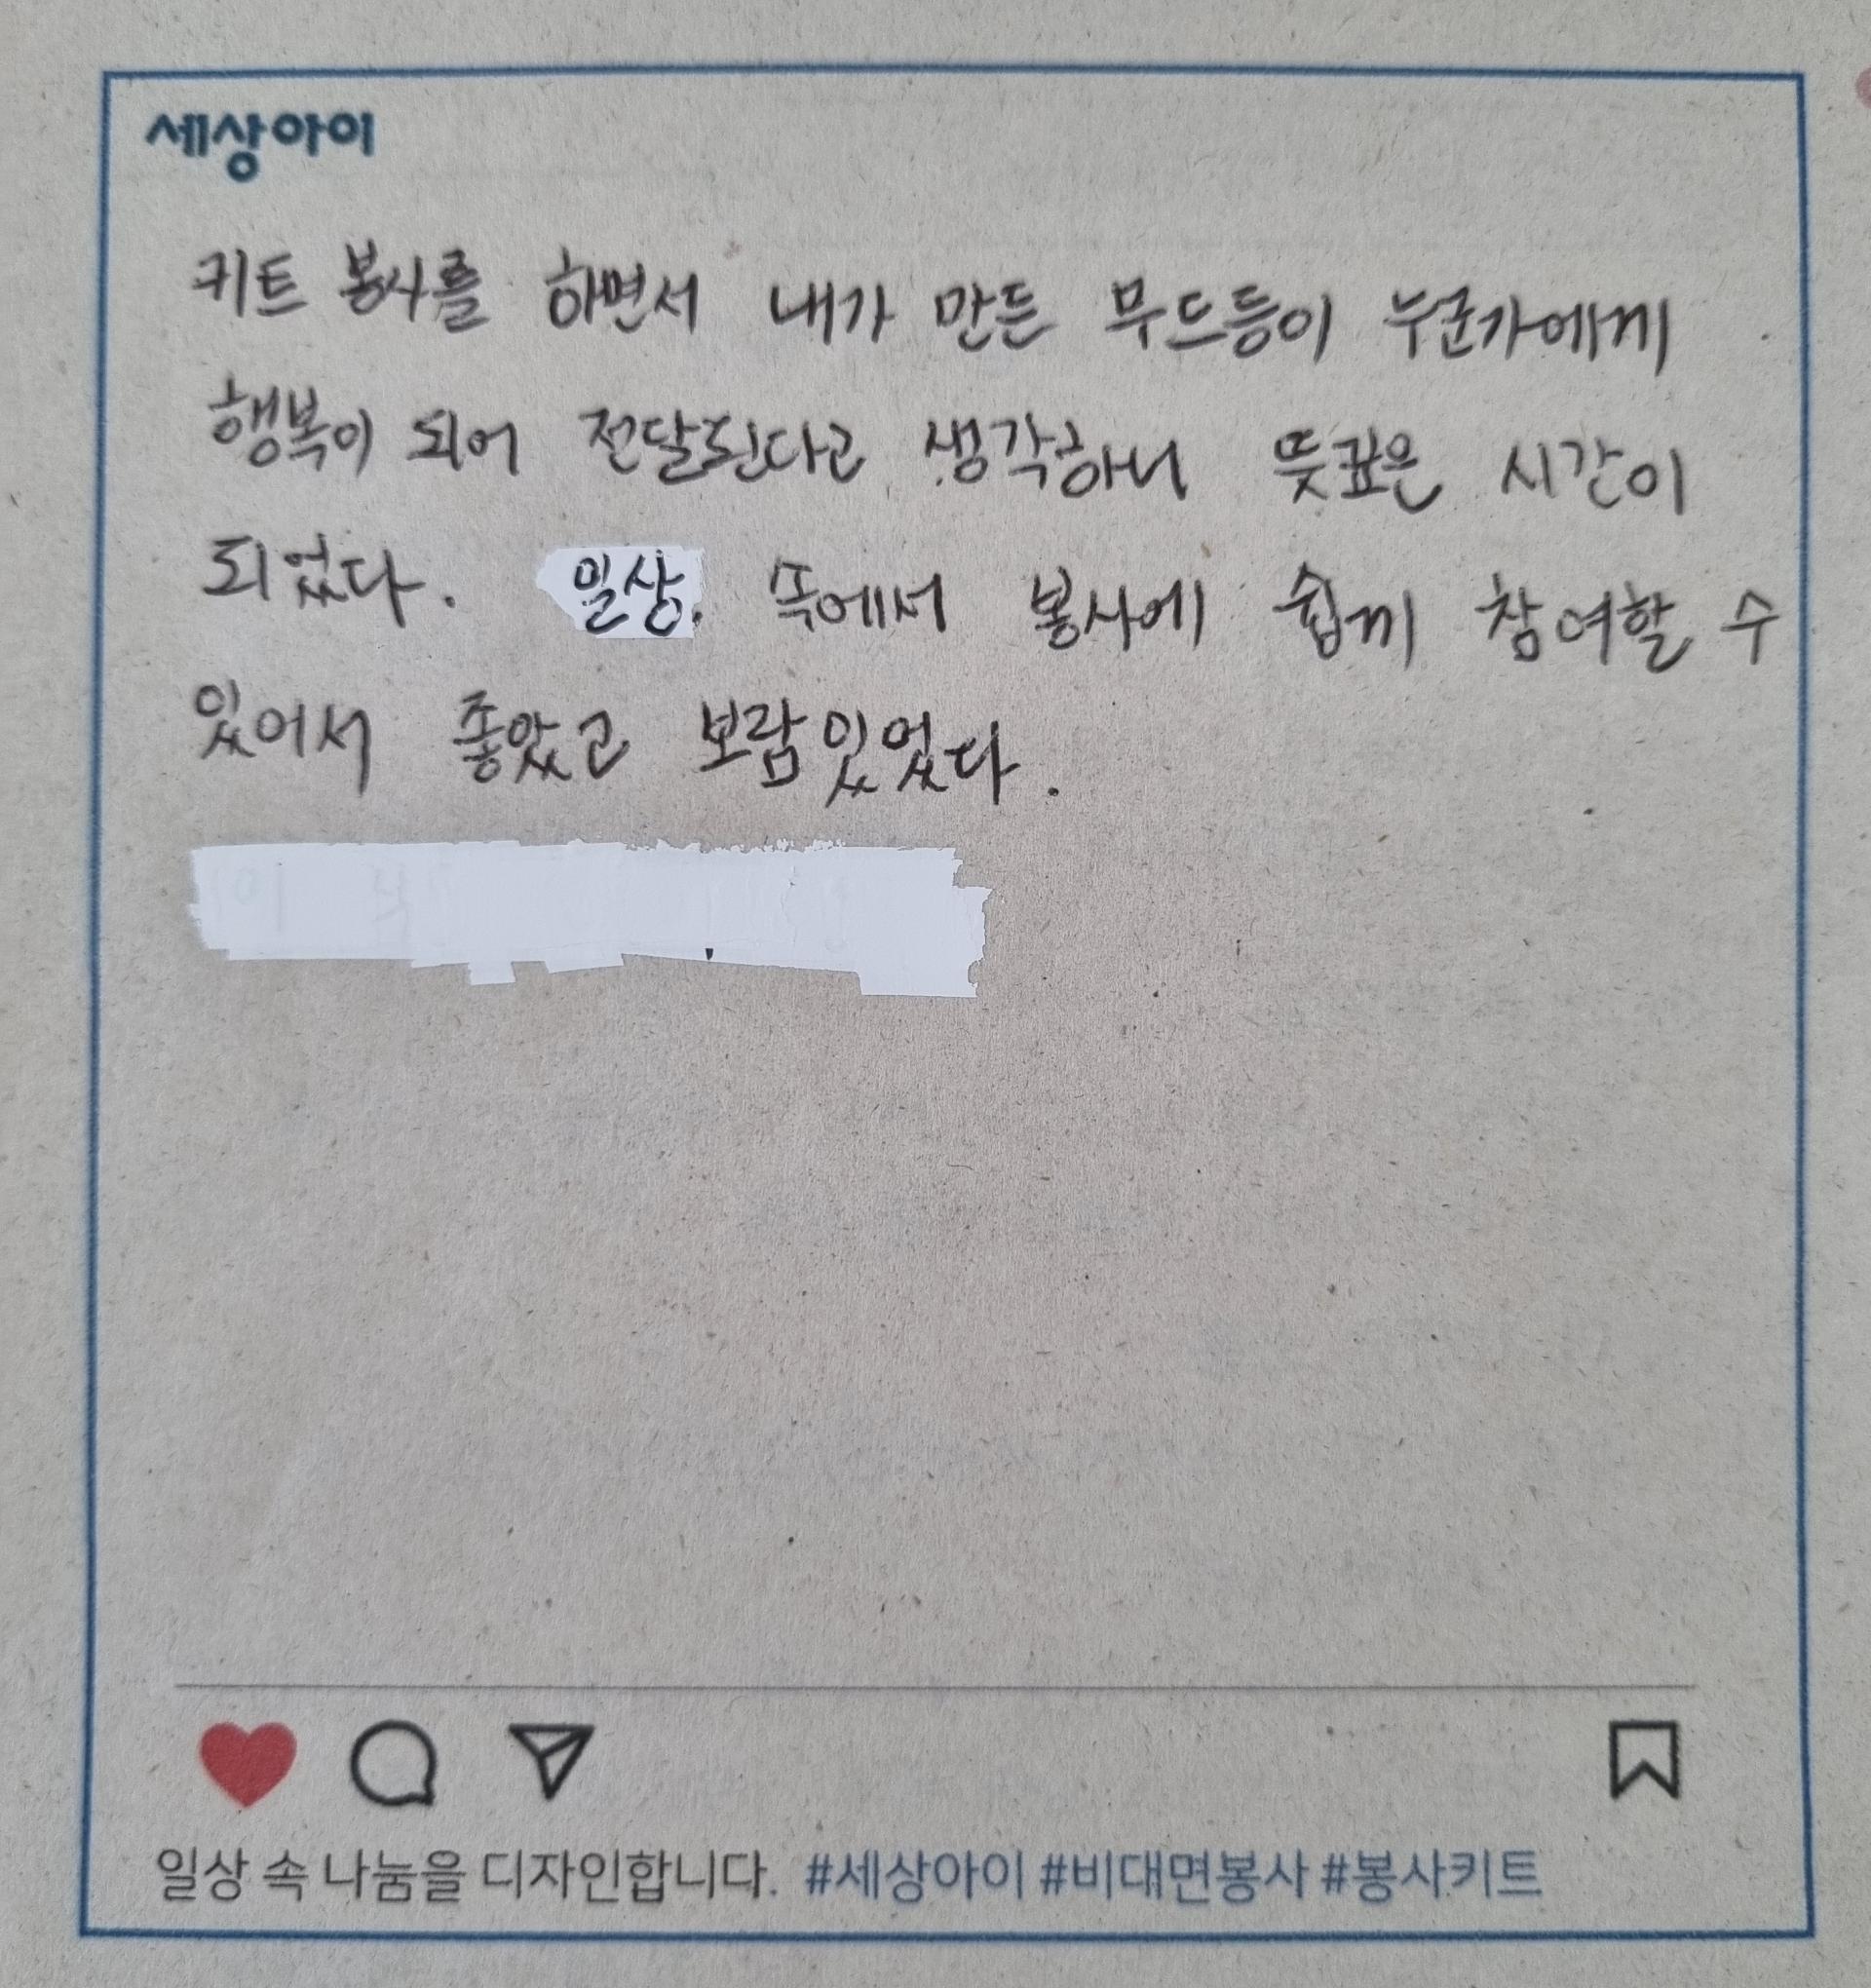 세상아이
키트 봉사를 하면서 내가 만든 무드등이 누군가에게
행복이 되어 전달된다고 생각하니 뜻깊은 시간이
되었다. 일상 속에서 봉사에 쉽게 참여할 수
있어서 좋았고 보람있었다.
일상 속 나눔을 디자인합니다. #세상아이 #비대면봉사 #봉사키트